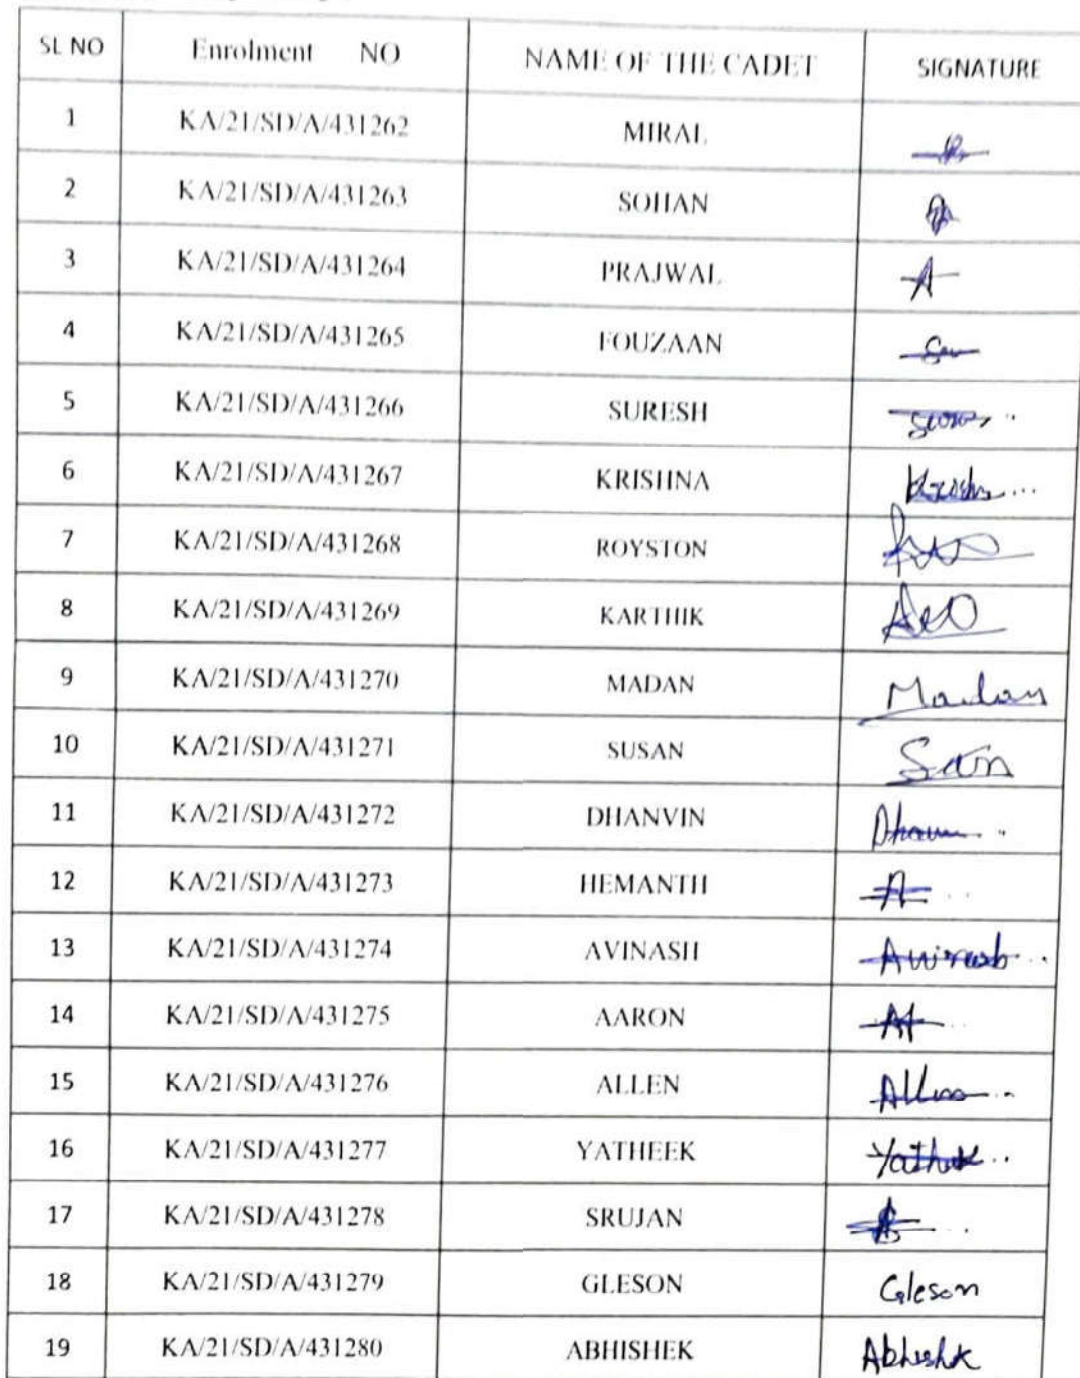 SL NO Enrolment NO NAME OF THE CADET SIGNATURE
1 KA/21/SD/A/431262 MIRAL
2 KA/21/SD/A/431263 SOHAN
3 KA/21/SD/A/431264 PRAJWAL
4 KA/21/SD/A/431265 FOUZAAN
5 KA/21/SD/A/431266 SURESH
6 KA/21/SD/A/431267 KRISHNA
7 KA/21/SD/A/431268 ROYSTON
8 KA/21/SD/A/431269 KARTHIK
9 KA/21/SD/A/431270 MADAN Madan
10 KA/21/SD/A/431271 SUSAN
11 KA/21/SD/A/431272 DHANVIN
12 KA/21/SD/A/431273 HEMANTH
13 KA/21/SD/A/431274 AVINASH
14 KA/21/SD/A/431275 AARON
15 KA/21/SD/A/431276 ALLEN
16 KA/21/SD/A/431277 YATHEEK
17 KA/21/SD/A/431278 SRUJAN
18 KA/21/SD/A/431279 GLESON Gleson
19 KA/21/SD/A/431280 ABHISHEK